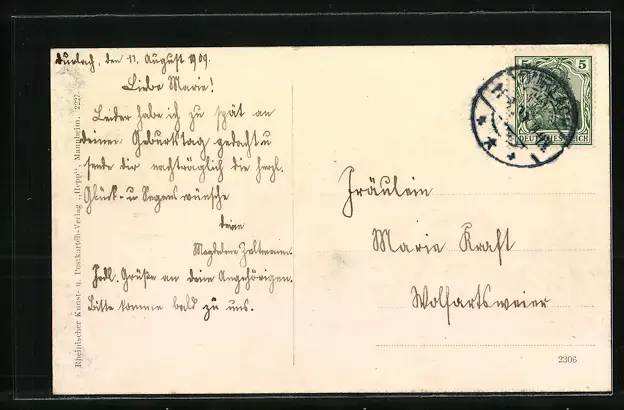 Durlach, den 11. August 1909.
Liebe Marie!
Leider habe ich zu spät an
deinen Geburtstag gedacht u
sende dir nachträglich die herzl.
Glück- u Segenswünsche
deine
Magdalene
Herzl. Grüße an deine Angehörigen.
Bitte komme bald zu uns.
Rheinischer Kunst- u. Postkarten-Verlag „Hepp“, Mannheim. 2227.
5 5
DEUTSCHES REICH
Fräulein
Marie Kraft
Wolfartsweier
2306